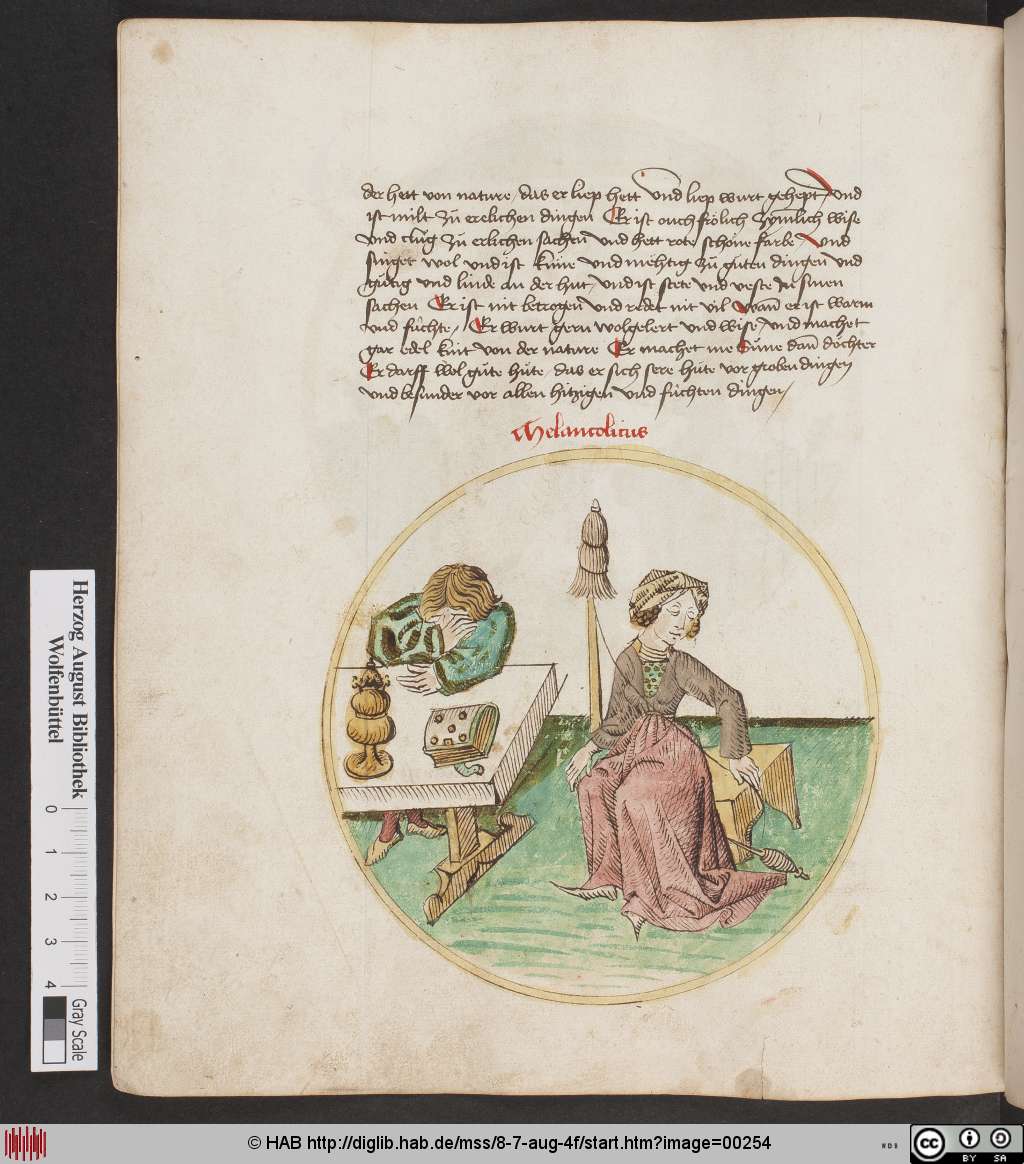 der hett von nature / das er liep hett Vnd liep wurt gehept / vnd
ist milt zů erelichen dingen Er ist ouch frölich zymlich wise
vnd clůg zů erlichen sachen vnd hett rote schone farbe / vnd
singet wol vnd ist küne vnd mehtig zů gůten dingen vnd
gůtig vnd linde an der hut / vnd ist stete vnd veste In sinen
sachen Er ist nit betrogen vnd redet nit vil Wan er ist warm
vnd fůchte / Er wurt gern wolgelert vnd wise / vnd machet
gar edel kint von der nature Er machet me Sune dan döchter
Er darff wol gůte hůte das er sich sere hůte vor groben dingen
vnd besunder vor allen hitzigen vnd fůchten dingen /
Melancolicus
Herzog August Bibliothek
Wolfenbüttel
0 1 2 3 4
Gray Scale
© HAB http://diglib.hab.de/mss/8-7-aug-4f/start.htm?image=00254
WDB
cc BY SA